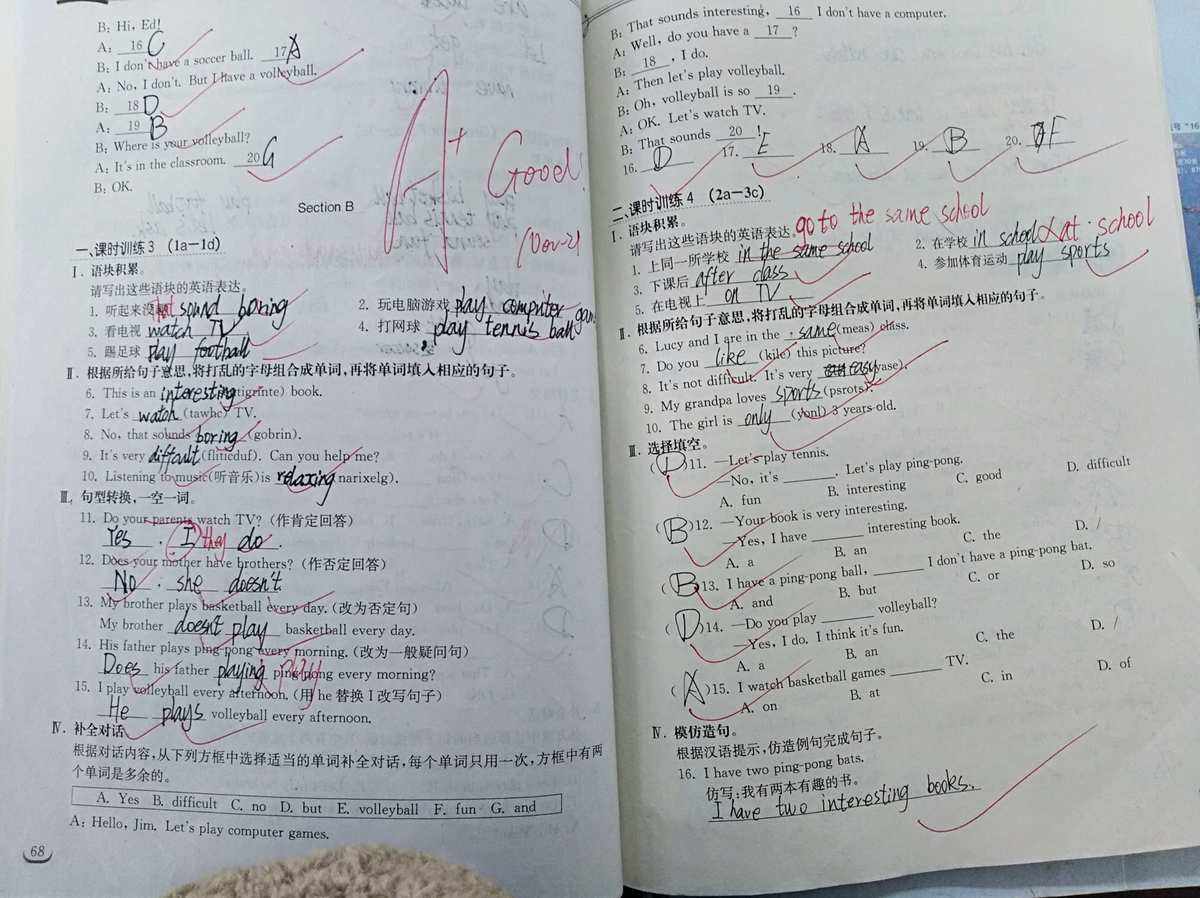 B: Hi, Ed!
A: 16 C
B: I don't have a soccer ball. 17 A
A: No, I don't. But I have a volleyball.
B: 18 D
A: 19 B
B: Where is your volleyball?
A: It's in the classroom. 20 G
B: OK.
A+ Good!
Nov-21
Section B
一、课时训练3 (1a—1d)
Ⅰ. 语块积累。
请写出这些语块的英语表达。
1. 听起来没趣 sound boring
2. 玩电脑游戏 play computer game
3. 看电视 watch TV
4. 打网球 play tennis ball
5. 踢足球 play football
Ⅱ. 根据所给句子意思,将打乱的字母组合成单词,再将单词填入相应的句子。
6. This is an interesting (tigrinte) book.
7. Let's watch (tawhc) TV.
8. No, that sounds boring (gobrin).
9. It's very difficult (fliticduf). Can you help me?
10. Listening to music(听音乐)is relaxing narixelg).
Ⅲ. 句型转换,一空一词。
11. Do your parents watch TV? (作肯定回答)
Yes , I they do .
12. Does your mother have brothers? (作否定回答)
No , she doesn't.
13. My brother plays basketball every day. (改为否定句)
My brother doesn't play basketball every day.
14. His father plays ping-pong every morning. (改为一般疑问句)
Does his father playing play ping-pong every morning?
15. I play volleyball every afternoon. (用 he 替换 I 改写句子)
He plays volleyball every afternoon.
Ⅳ. 补全对话
根据对话内容,从下列方框中选择适当的单词补全对话,每个单词只用一次,方框中有两
个单词是多余的。
A. Yes B. difficult C. no D. but E. volleyball F. fun G. and
A: Hello, Jim. Let's play computer games.
68
B: That sounds interesting, 16 I don't have a computer.
A: Well, do you have a 17 ?
B: 18 , I do.
A: Then let's play volleyball.
B: Oh, volleyball is so 19 .
A: OK. Let's watch TV.
B: That sounds 20 !
16. D 17. E 18. A 19. B 20. F
二、课时训练4 (2a—3c)
Ⅰ. 语块积累。
请写出这些语块的英语表达。 go to the same school
1. 上同一所学校 in the same school
2. 在学校 in school at school
3. 下课后 after class
4. 参加体育运动 play sports
5. 在电视上 on TV
Ⅱ. 根据所给句子意思,将打乱的字母组合成单词,再将单词填入相应的句子。
6. Lucy and I are in the same (meas) class.
7. Do you like (kile) this picture?
8. It's not difficult. It's very easy (yase).
9. My grandpa loves sports (psrots).
10. The girl is only (yonl) 3 years old.
Ⅲ. 选择填空。
( D )11. —Let's play tennis.
—No, it's ______. Let's play ping-pong.
A. fun B. interesting C. good D. difficult
( B )12. —Your book is very interesting.
—Yes, I have ______ interesting book.
A. a B. an C. the D. /
( B )13. I have a ping-pong ball, ______ I don't have a ping-pong bat.
A. and B. but C. or D. so
( D )14. —Do you play ______ volleyball?
—Yes, I do. I think it's fun.
A. a B. an C. the D. /
( A )15. I watch basketball games ______ TV.
A. on B. at C. in D. of
Ⅳ. 模仿造句。
根据汉语提示,仿造例句完成句子。
16. I have two ping-pong bats.
仿写:我有两本有趣的书。
I have two interesting books.